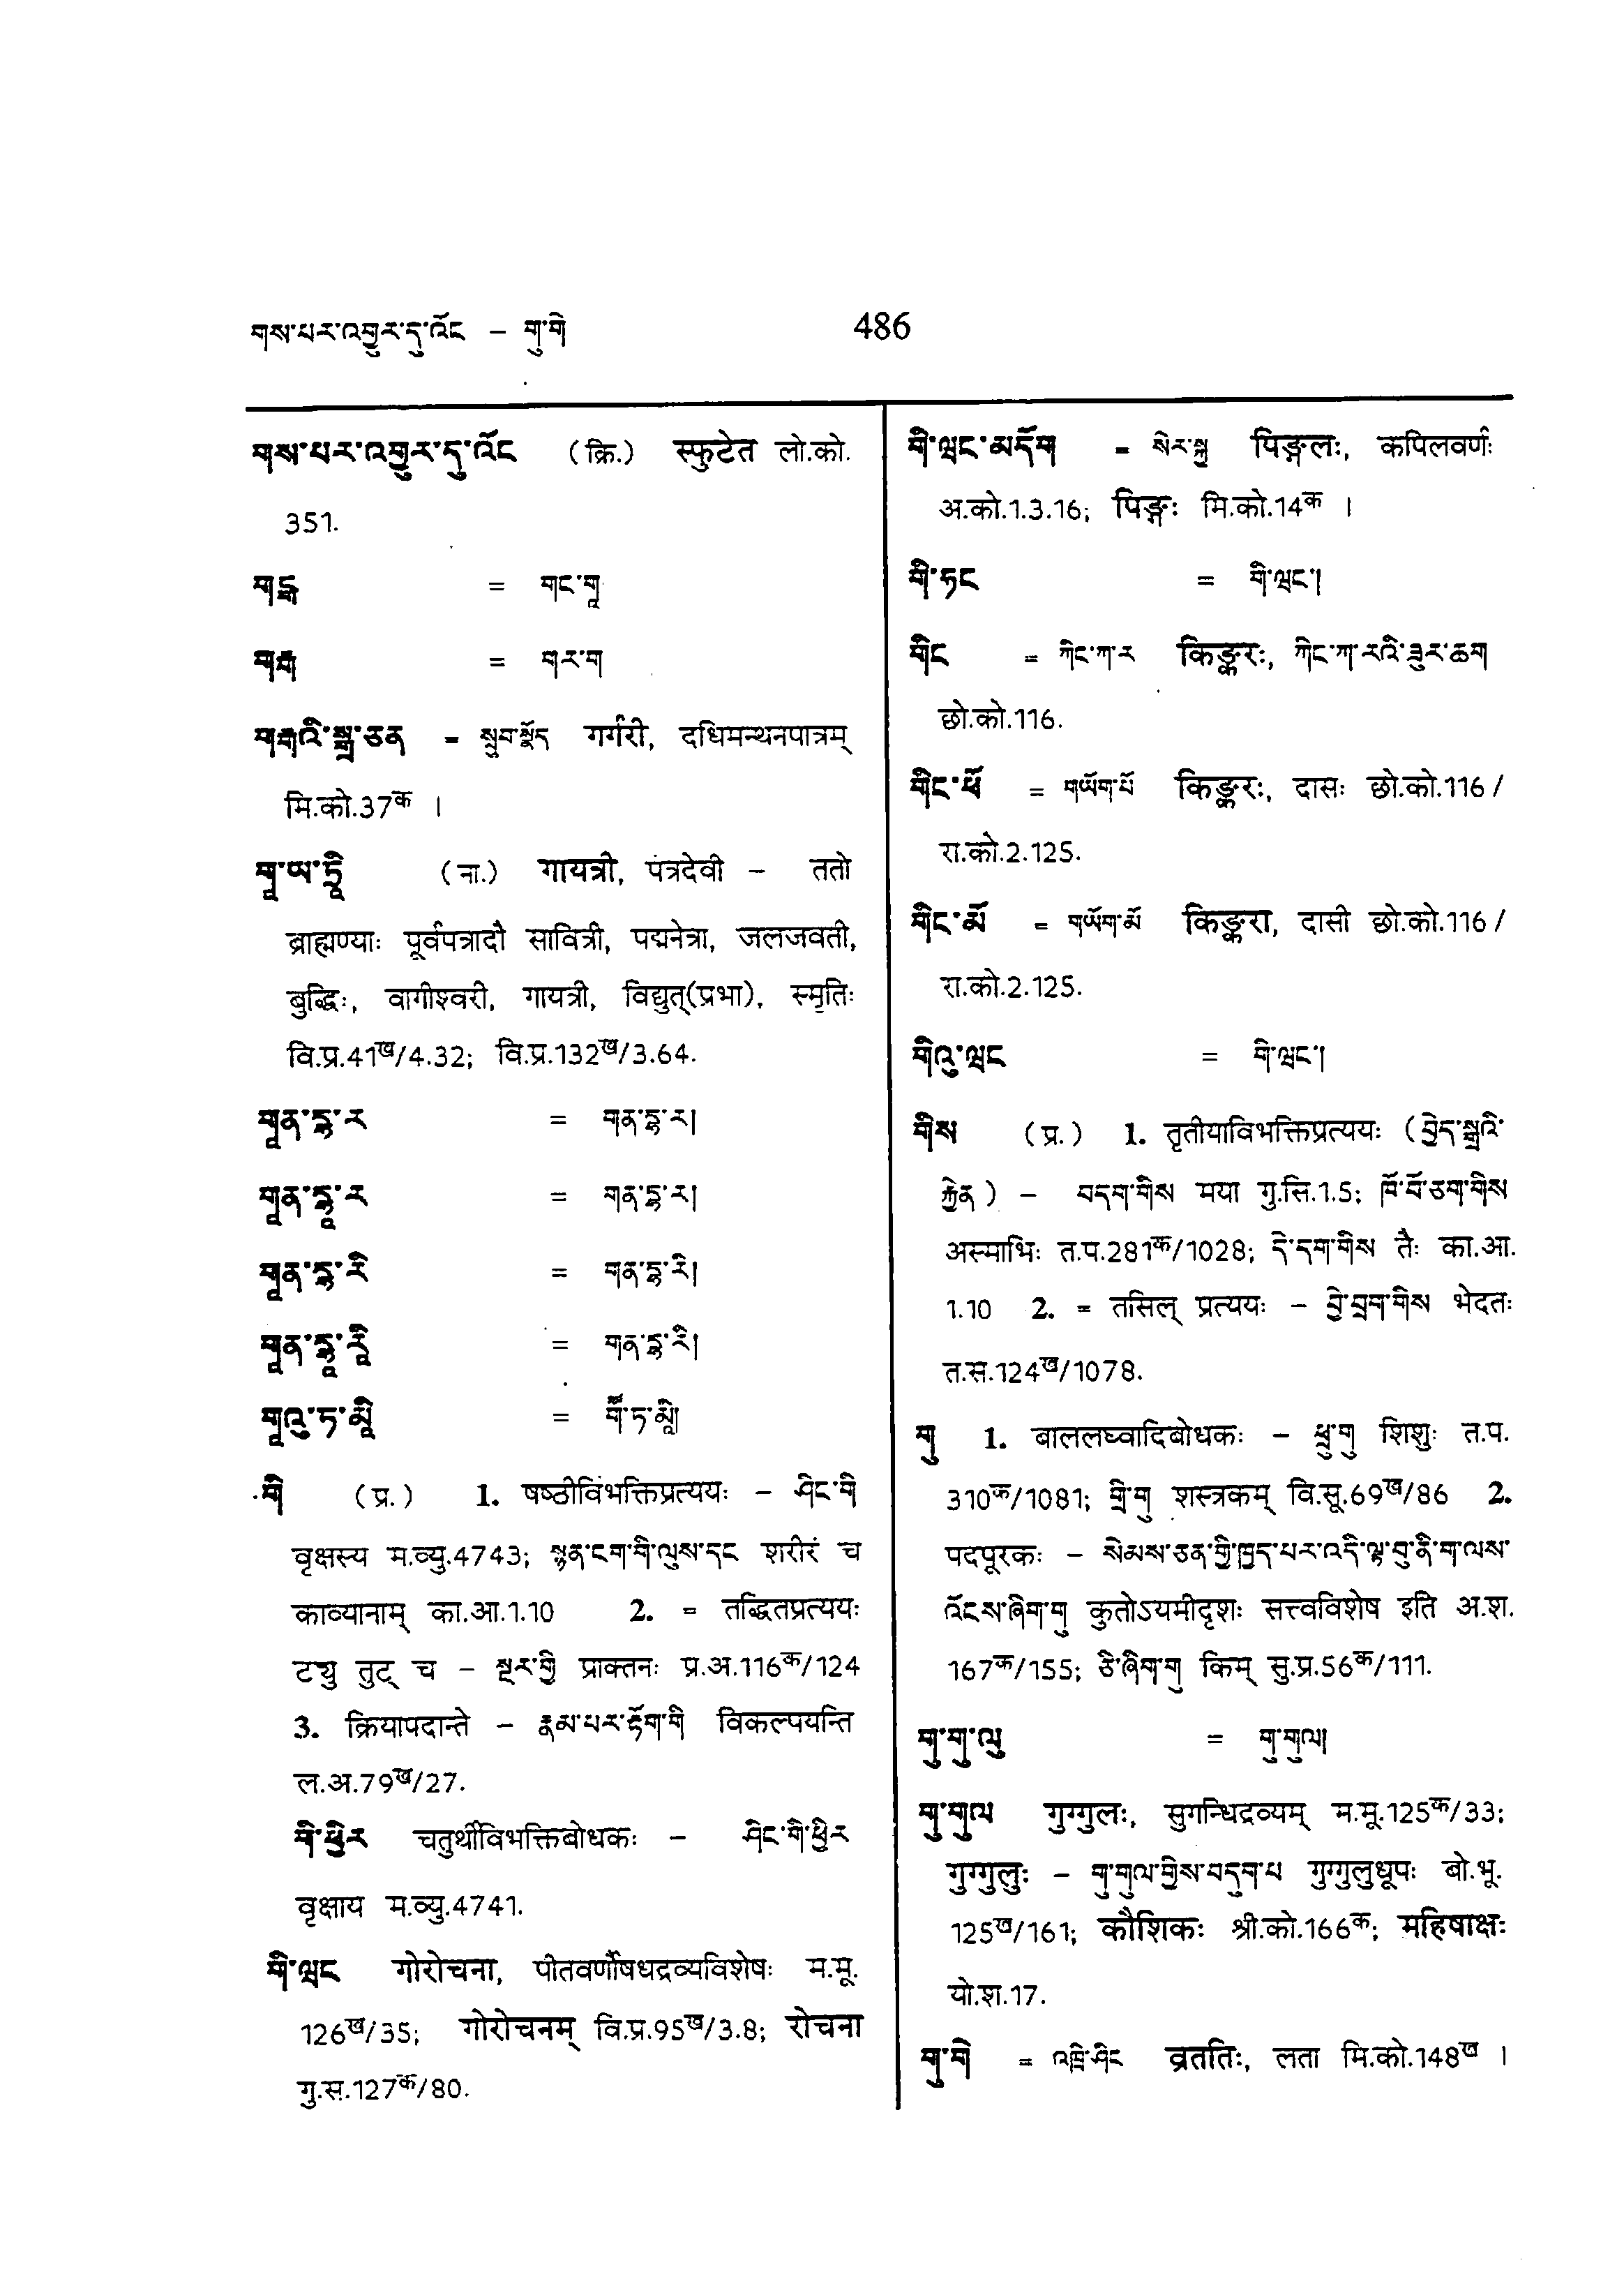 གས་པར་འགྱུར་དུ་འོང – གུ་གེ
486
གས་པར་འགྱུར་དུ་འོང (क्रि.) स्फुटेत लो.को.
351.
གངྒཱ = གང་གཱ
གརྒ = གར་ག
གརྒའི་སྒྲ་ཅན = སྲུབ་སྣོད गर्गरी, दधिमन्थनपात्रम्
मि.को.37क ।
གཱ་ཡ་ཏྲཱི (ना.) गायत्री, पत्रदेवी – ततो
ब्राह्मण्याः पूर्वपत्रादौ सावित्री, पद्मनेत्रा, जलजवती,
बुद्धिः, वागीश्वरी, गायत्री, विद्युत्(प्रभा), स्मृतिः
वि.प्र.41ख/4.32; वि.प्र.132ख/3.64.
གཱན་དྷ་ར = གན་དྷ་ར།
གཱན་དྷཱ་ར = གན་དྷ་ར།
གཱན་དྷ་རི = གན་དྷ་རི།
གཱན་དྷཱ་རཱི = གན་དྷ་རི།
གཱའུ་ཏ་མཱི = གཽ་ཏ་མཱི།
གི (प्र.) 1. षष्ठीविभक्तिप्रत्ययः – ཤིང་གི
वृक्षस्य म.व्यु.4743; སྙན་ངག་གི་ལུས་དང शरीरं च
काव्यानाम् का.आ.1.10 2. = तद्धितप्रत्ययः
ट्यु तुट् च – སྔར་གྱི प्राक्तनः प्र.अ.116क/124
3. क्रियापदान्ते – རྣམ་པར་རྟོག་གི विकल्पयन्ति
ल.अ.79ख/27.
གི་ཕྱིར चतुर्थीविभक्तिबोधकः – ཤིང་གི་ཕྱིར
वृक्षाय म.व्यु.4741.
གི་ཝང गोरोचना, पीतवर्णौषधद्रव्यविशेषः म.मू.
126ख/35; गोरोचनम् वि.प्र.95ख/3.8; रोचना
गु.स.127क/80.
གི་ཝང་མདོག = སེར་སྐྱ पिङ्गलः, कपिलवर्णः
अ.को.1.3.16; पिङ्गः मि.को.14क ।
གི་ཧང = གི་ཝང་།
གིང = ཀིང་ཀ་ར किङ्करः, ཀིང་ཀ་རའི་ཟུར་ཆག
छो.को.116.
གིང་ཕོ = གཡོག་པོ किङ्करः, दासः छो.को.116/
रा.को.2.125.
གིང་མོ = གཡོག་མོ किङ्करा, दासी छो.को.116/
रा.को.2.125.
གིའུ་ཝང = གི་ཝང་།
གིས (प्र.) 1. तृतीयाविभक्तिप्रत्ययः (བྱེད་སྒྲའི་
རྐྱེན) – བདག་གིས मया गु.सि.1.5; ཁོ་བོ་ཅག་གིས
अस्माभिः त.प.281क/1028; དེ་དག་གིས तैः का.आ.
1.10 2. = तसिल् प्रत्ययः – བྱེ་བྲག་གིས भेदतः
त.स.124ख/1078.
གུ 1. बाललघ्वादिबोधकः – ཕྲུ་གུ शिशुः त.प.
310क/1081; གྲི་གུ शस्त्रकम् वि.सू.69ख/86 2.
पदपूरकः – སེམས་ཅན་གྱི་ཁྱད་པར་འདི་ལྟ་བུ་ནི་ག་ལས་
འོངས་ཞིག་གུ कुतोऽयमीदृशः सत्त्वविशेष इति अ.श.
167क/155; ཅི་ཞིག་གུ किम् सु.प्र.56क/111.
གུ་གུ་ལུ = གུ་གུལ།
གུ་གུལ गुग्गुलः, सुगन्धिद्रव्यम् म.मू.125क/33;
गुग्गुलुः – གུ་གུལ་གྱིས་བདུག་པ गुग्गुलुधूपः बो.भू.
125ख/161; कौशिकः श्री.को.166क; महिषाक्षः
यो.श.17.
གུ་གེ = འཁྲི་ཤིང व्रततिः, लता मि.को.148ख ।